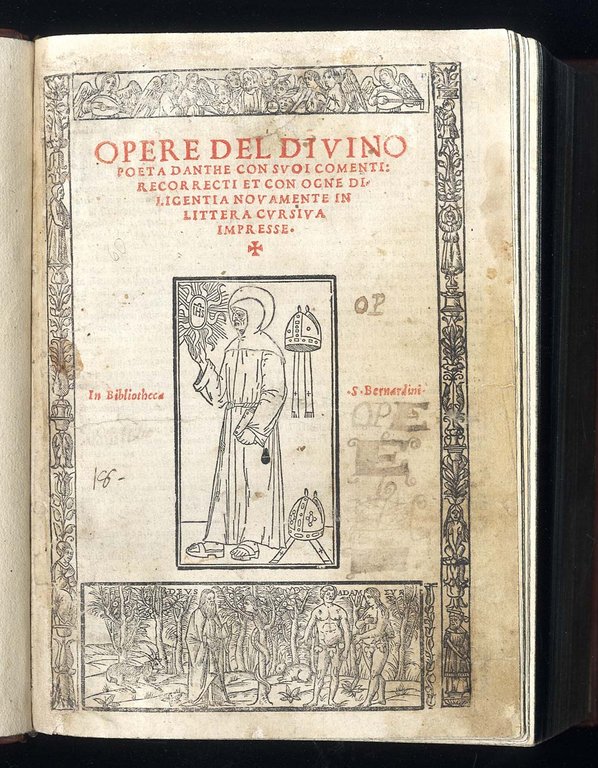 OPERE DEL DIVINO
POETA DANTHE CON SVOI COMENTI:
RECORRECTI ET CON OGNE DI-
LIGENTIA NOVAMENTE IN
LITTERA CVRSIVA
IMPRESSE.
IHS
OP
In Bibliotheca
.S. Bernardini.
DEVS
ADAM
EVA